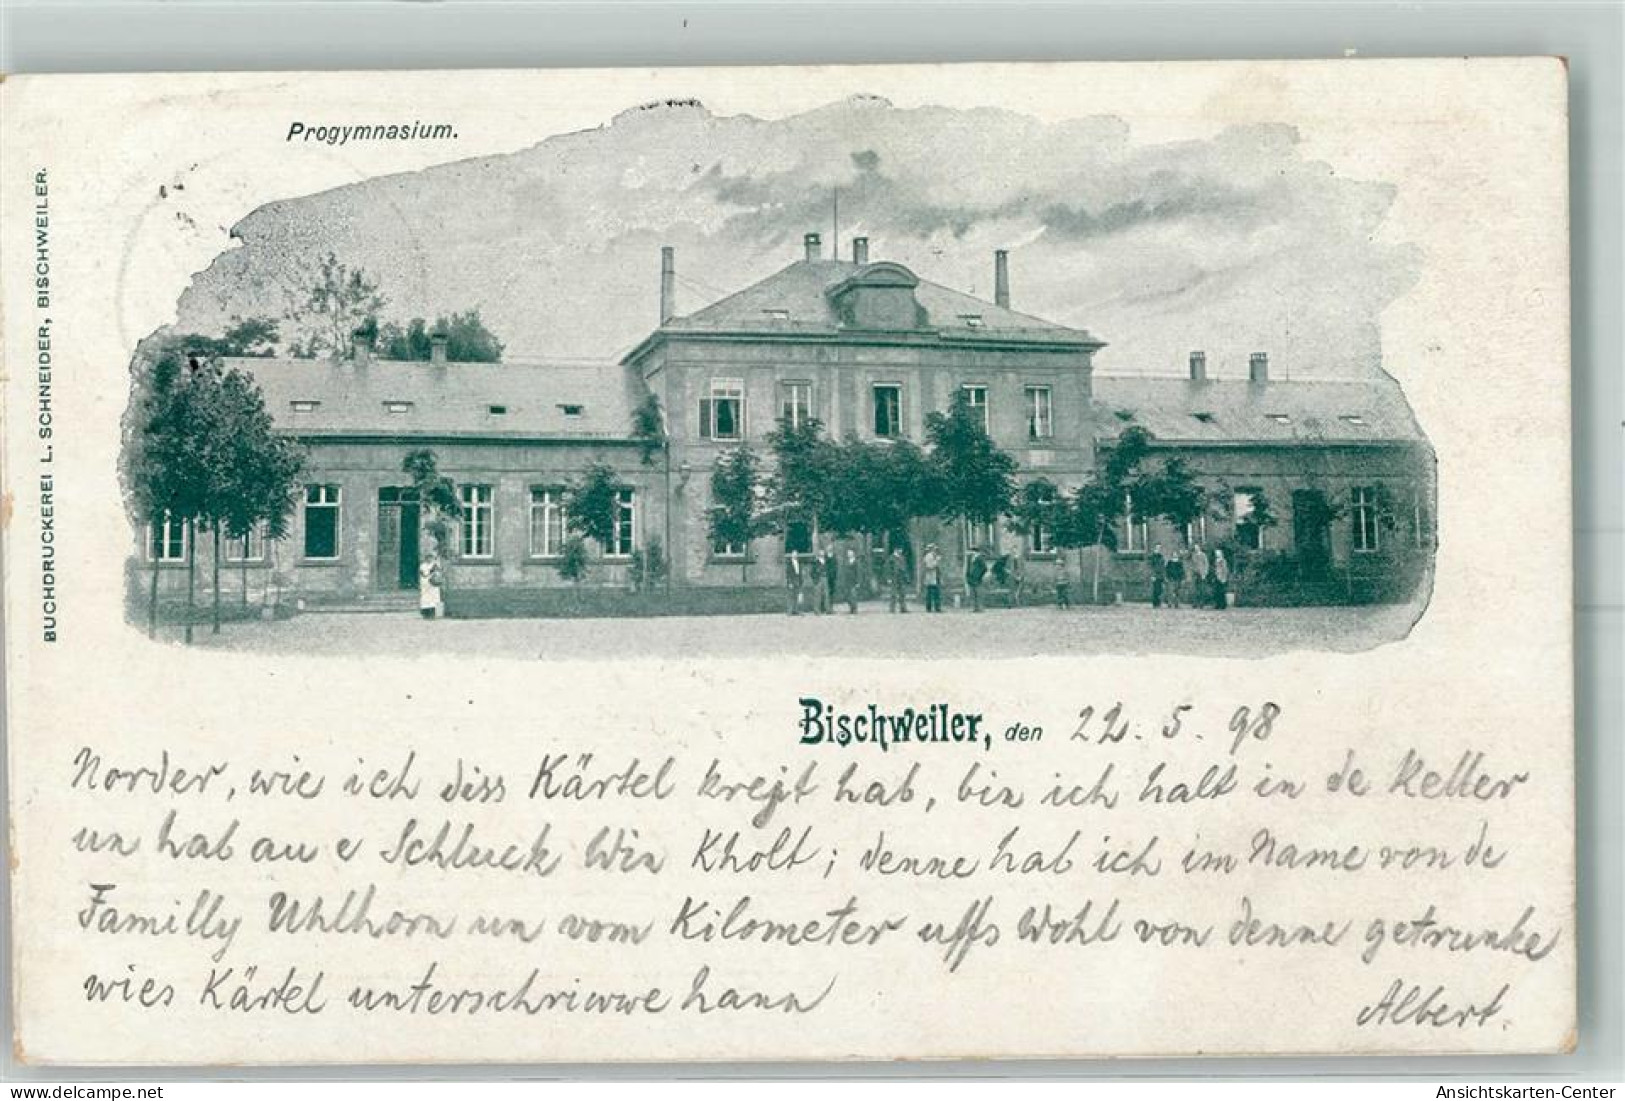 Progymnasium.
BUCHDRUCKEREI L. SCHNEIDER, BISCHWEILER.
Bischweiler, den 22. 5. 98
Norder, wie ich diss Kärtel krejt hab, bin ich halt in de Keller
un hab au e Schluck Win Kholt; denne hab ich im Name von de
Familly Uhlhorn un vom Kilometer uffs Wohl von denne getrunke
wies Kärtel unterschriwwe hann
Albert.
oldthing
Ansichtskarten-Center